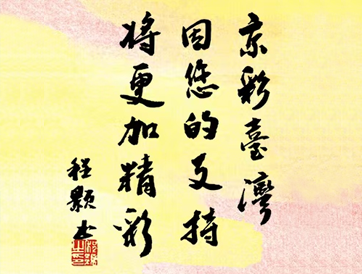 京彩臺灣
因您的支持
将更加精彩
程顥书